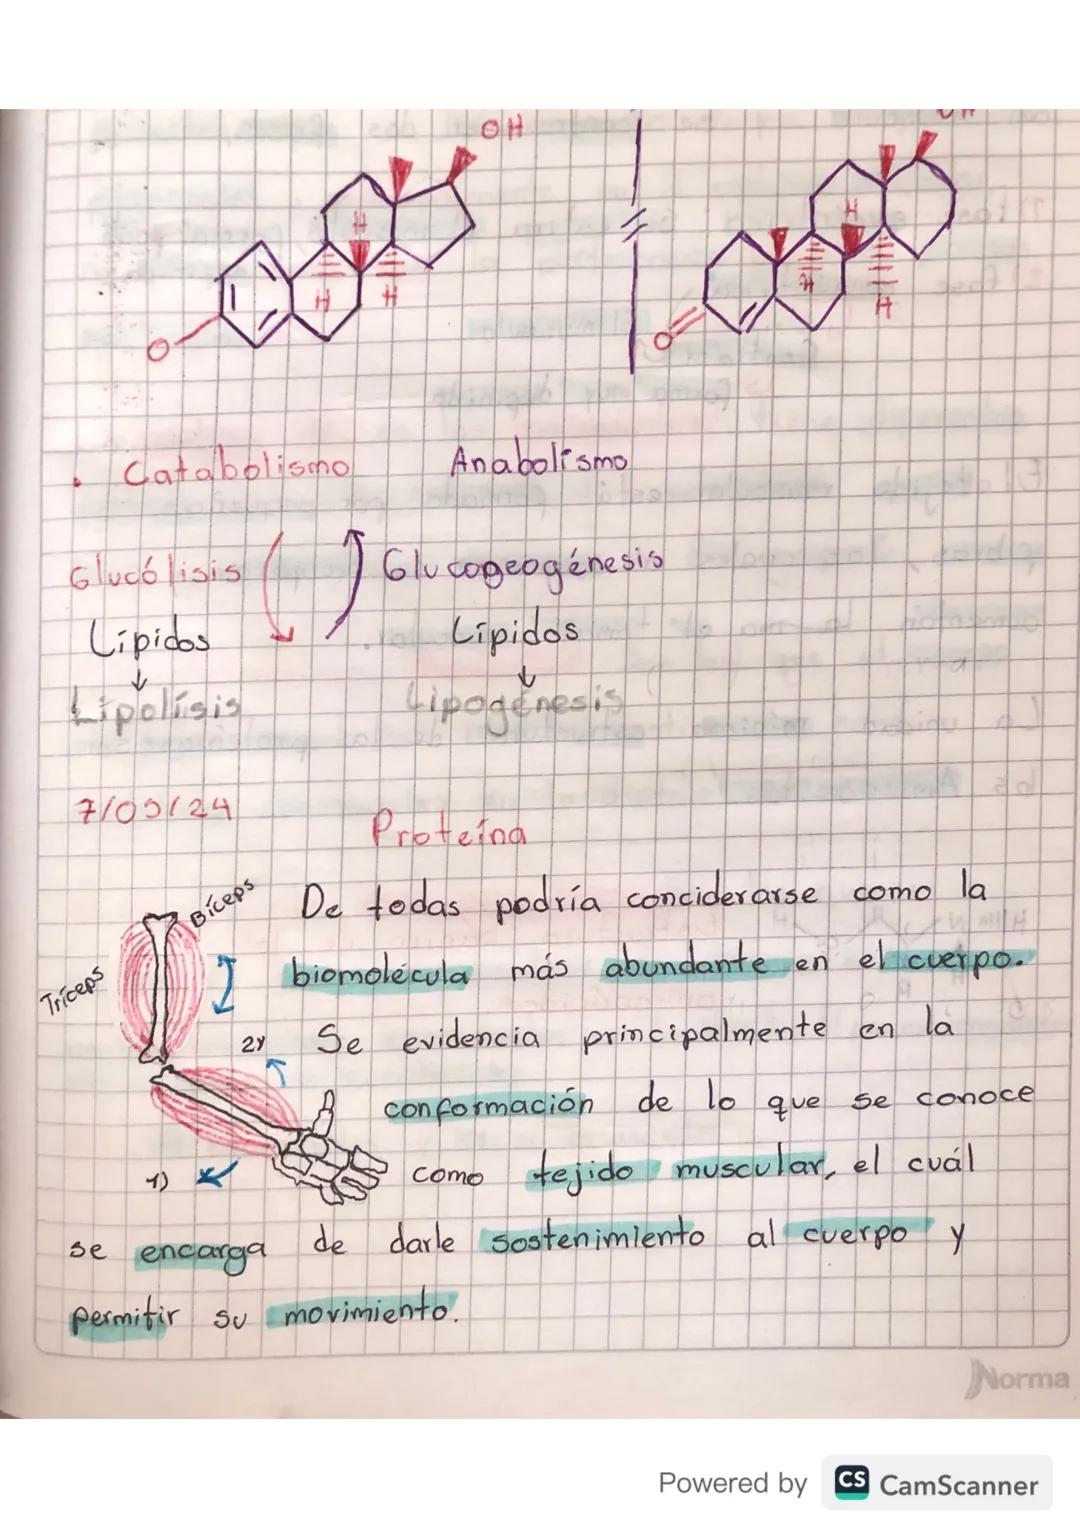 OH
OH
H
H
H
H
H
H
O
O
• Catabolismo Anabolismo
Glucólisis Glucogeogénesis
Lípidos Lípidos
Lipolísis Lipogénesis
7/05/24
Proteína
Bíceps
Tríceps
De todas podría conciderarse como la
biomolécula más abundante en el cuerpo.
2) Se evidencia principalmente en la
conformación de lo que se conoce
1) como tejido muscular, el cuál
se encarga de darle sostenimiento al cuerpo y
permitir su movimiento.
Norma
Powered by CS CamScanner